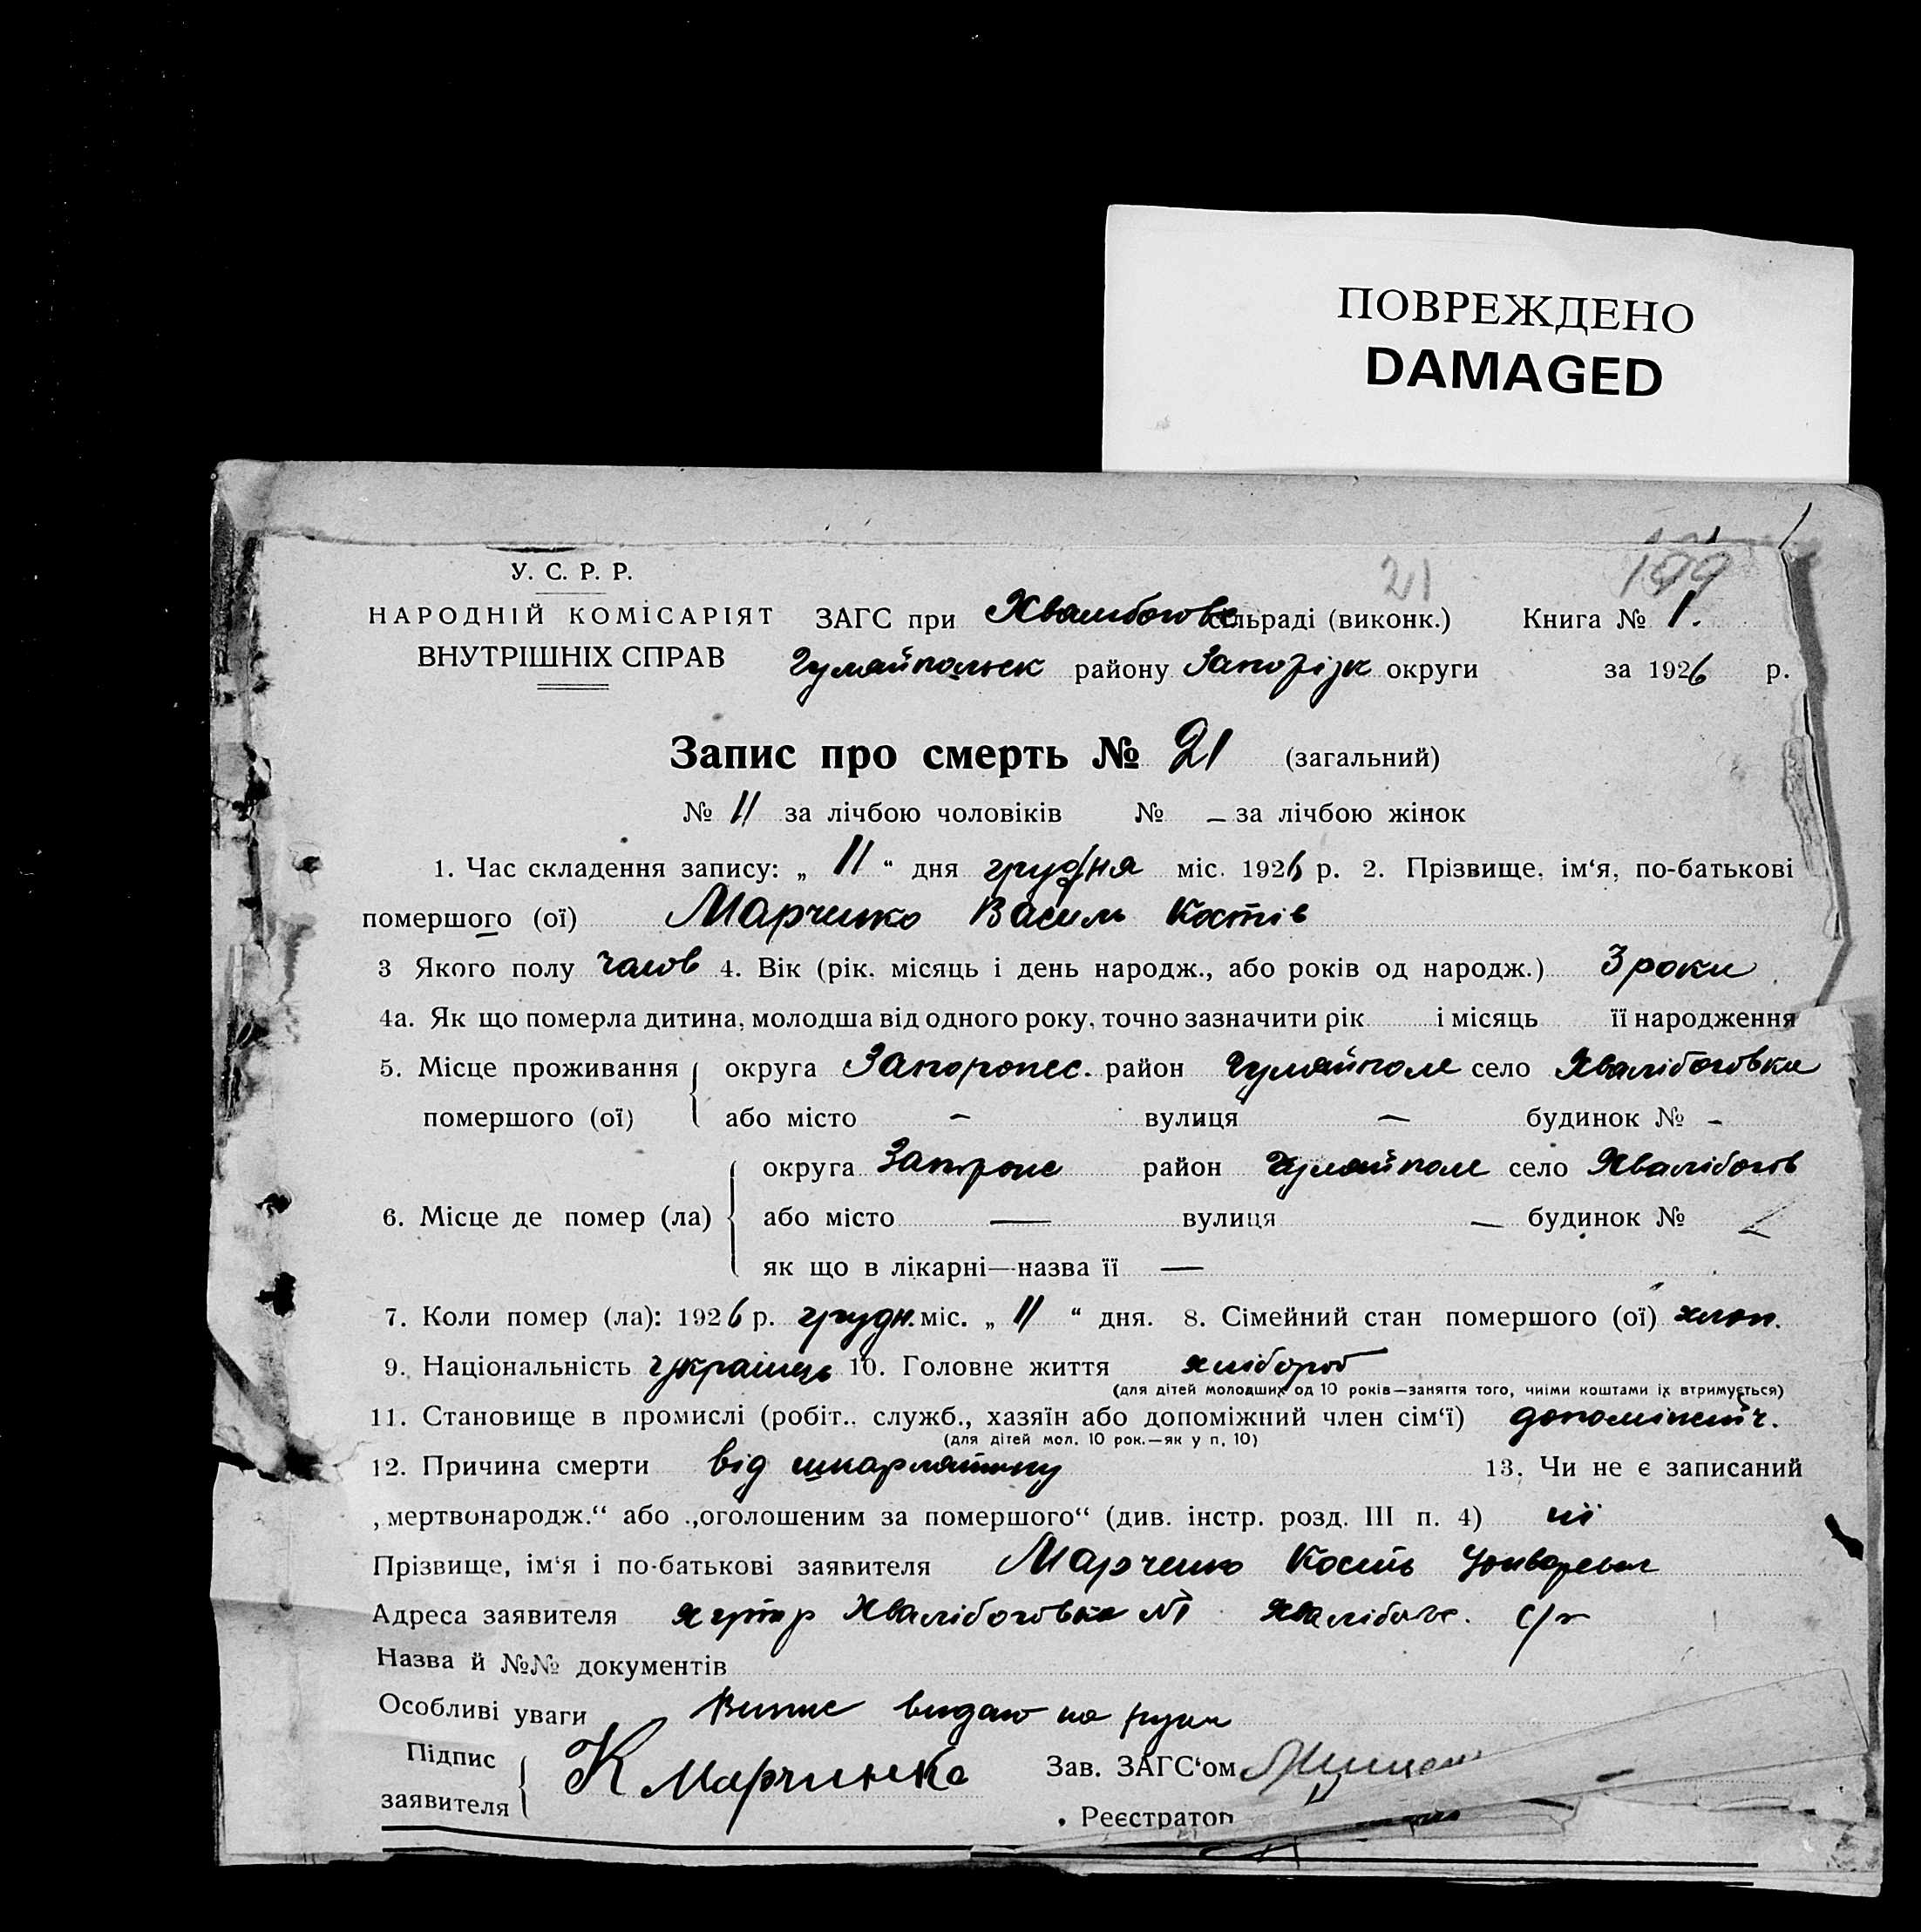 ПОВРЕЖДЕНО
DAMAGED
21
199
У. С. Р. Р.
НАРОДНІЙ КОМІСАРІЯТ ЗАГС при Хвалібогов сільраді (виконк.) Книга № 1.
ВНУТРІШНІХ СПРАВ Гуляйпольск району Запоріжк округи за 1926 р.
Запис про смерть № 21 (загальний)
№ 11 за лічбою чоловіків № – за лічбою жінок
1. Час складення запису: „ 11 “ дня грудня міс. 1926 р. 2. Прізвище, ім‘я, по-батькові
помершого (ої) Марченко Василь Костів
3 Якого полу чолов 4. Вік (рік. місяць і день народж., або років од народж.) 3 роки
4а. Як що померла дитина, молодша від одного року, точно зазначити рік і місяць її народження
5. Місце проживання округа Запорожс. район Гуляйполе село Хвалібоговка
помершого (ої) або місто – вулиця – будинок № -
округа Запорожс район Гуляйполе село Хвалібогов
6. Місце де помер (ла) або місто — вулиця — будинок №
як що в лікарні—назва її —
7. Коли помер (ла): 1926 р. грудн. міс. „ 11 “ дня. 8. Сімейний стан помершого (ої) хлоп.
9. Національність українець 10. Головне життя хлібороб
(для дітей молодших од 10 років—заняття того, чиїми коштами їх втримується)
11. Становище в промислі (робіт.. служб., хазяїн або допоміжний член сім‘ї)
(для дітей мол. 10 рок.—як у п, 10)
12. Причина смерти від шкарлятину 13. Чи не є записаний
„мертвонародж.“ або „оголошеним за помершого“ (див. інстр. розд. III п. 4) ні
Прізвище, ім‘я і по-батькові заявителя Марченко Кость
Адреса заявителя хутір Хвалібоговка №1 Хвалібогов. с/р
Назва й №№ документів
Особливі уваги Випис видано на руки
Підпис К Марченко Зав. ЗАГС‘ом
заявителя Реєстратор